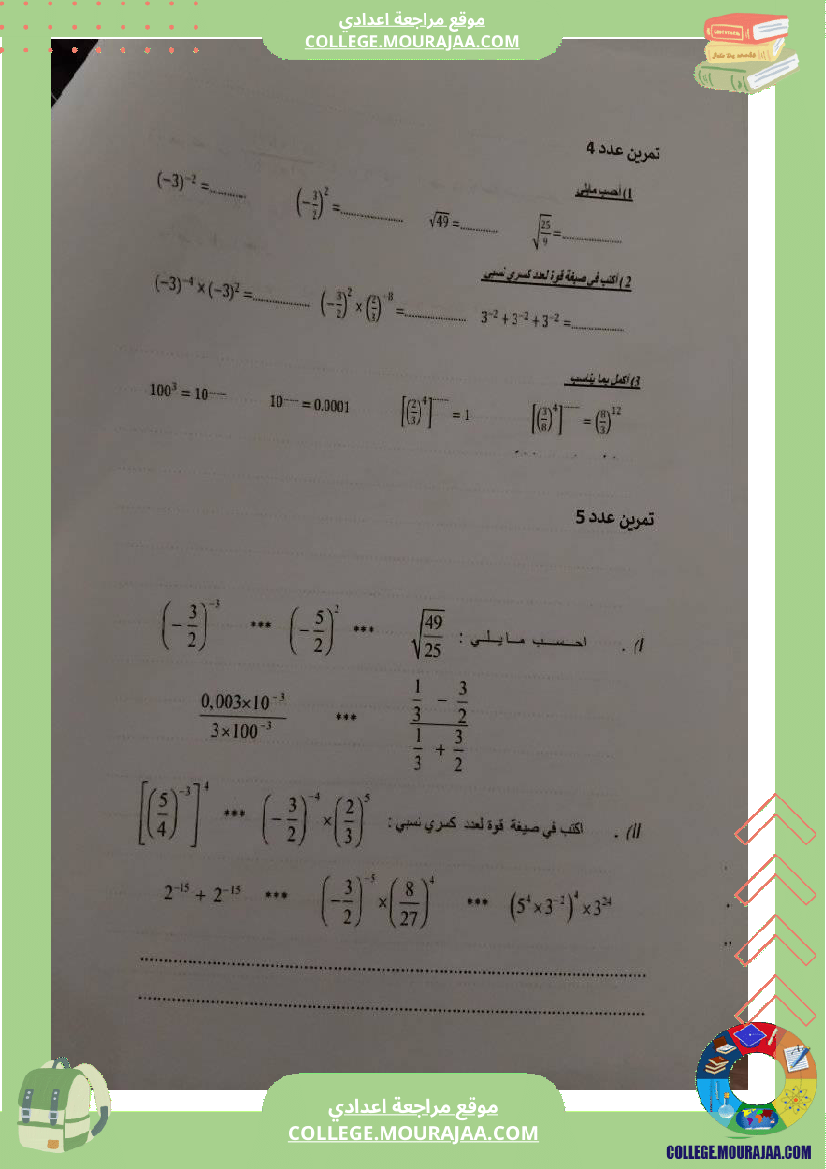 موقع مراجعة اعدادي
COLLEGE.MOURAJAA.COM
تمرين عدد 4
1) أحسب مايلي
(−3)⁻² =.......... (−3/2)² =.................. √49 =........... √(25/9) =.................
2) أكتب في صيغة قوة لعدد كسري نسبي
(−3)⁻⁴ × (−3)² =................ (−3/2)² × (2/3)⁻⁸ =................. 3⁻² + 3⁻² + 3⁻² =...............
3) أكمل بما يناسب
100³ = 10^..... 10^..... = 0.0001 [(2/3)⁴]^..... = 1 [(3/8)⁴]^..... = (8/3)¹²
تمرين عدد 5
I). احسب مايلي : √(49/25) *** (−5/2)² *** (−3/2)⁻³
(1/3 − 3/2)/(1/3 + 3/2) *** (0,003×10⁻³)/(3×100⁻³)
II). اكتب في صيغة قوة لعدد كسري نسبي: (−3/2)⁻⁴ × (2/3)⁵ *** [(5/4)⁻³]⁴
2⁻¹⁵ + 2⁻¹⁵ *** (−3/2)⁻⁵ × (8/27)⁴ *** (5⁴ × 3⁻²)⁴ × 3²⁴
موقع مراجعة اعدادي
COLLEGE.MOURAJAA.COM
COLLEGE.MOURAJAA.COM